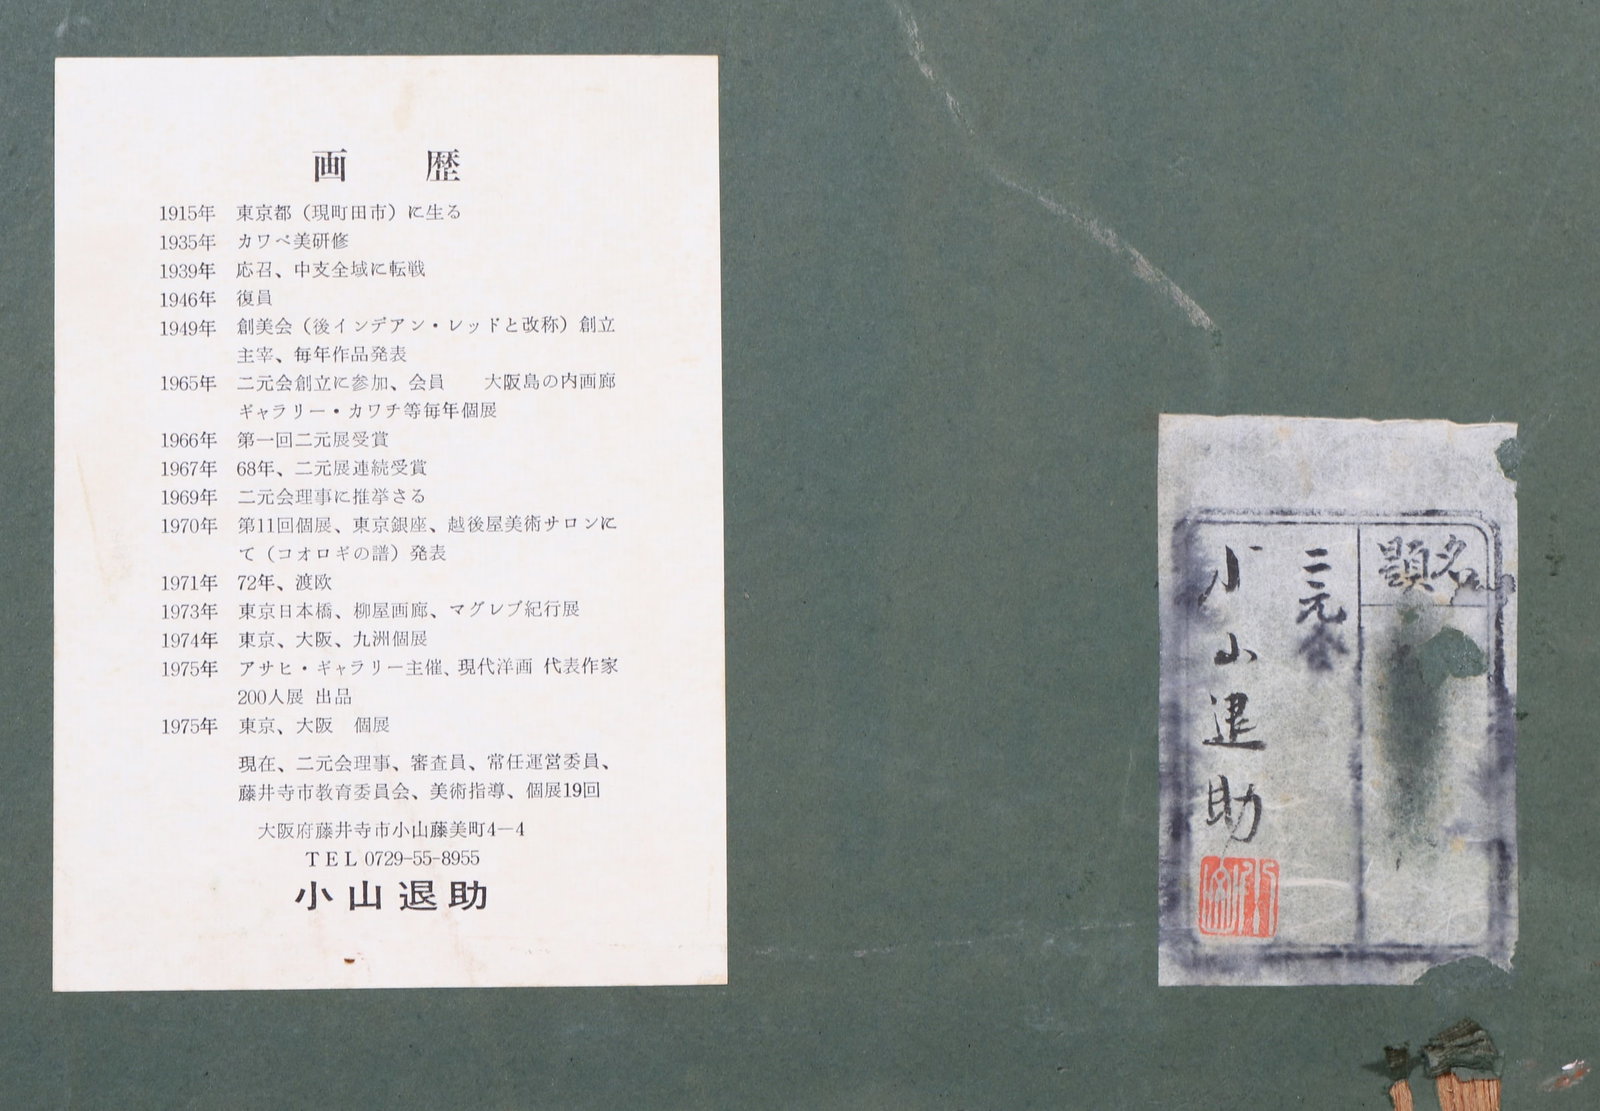 画歴
1915年 東京都（現町田市）に生る
1935年 カワベ美研修
1939年 応召、中支全域に転戦
1946年 復員
1949年 創美会（後インデアン・レッドと改称）創立
主宰、毎年作品発表
1965年 二元会創立に参加、会員 大阪島の内画廊
ギャラリー・カワチ等毎年個展
1966年 第一回二元展受賞
1967年 68年、二元展連続受賞
1969年 二元会理事に推挙さる
1970年 第11回個展、東京銀座、越後屋美術サロンに
て（コオロギの譜）発表
1971年 72年、渡欧
1973年 東京日本橋、柳屋画廊、マグレブ紀行展
1974年 東京、大阪、九洲個展
1975年 アサヒ・ギャラリー主催、現代洋画 代表作家
200人展 出品
1975年 東京、大阪 個展
現在、二元会理事、審査員、常任運営委員、
藤井寺市教育委員会、美術指導、個展19回
大阪府藤井寺市小山藤美町4－4
TEL 0729-55-8955
小山退助
題名
二元会
小山退助